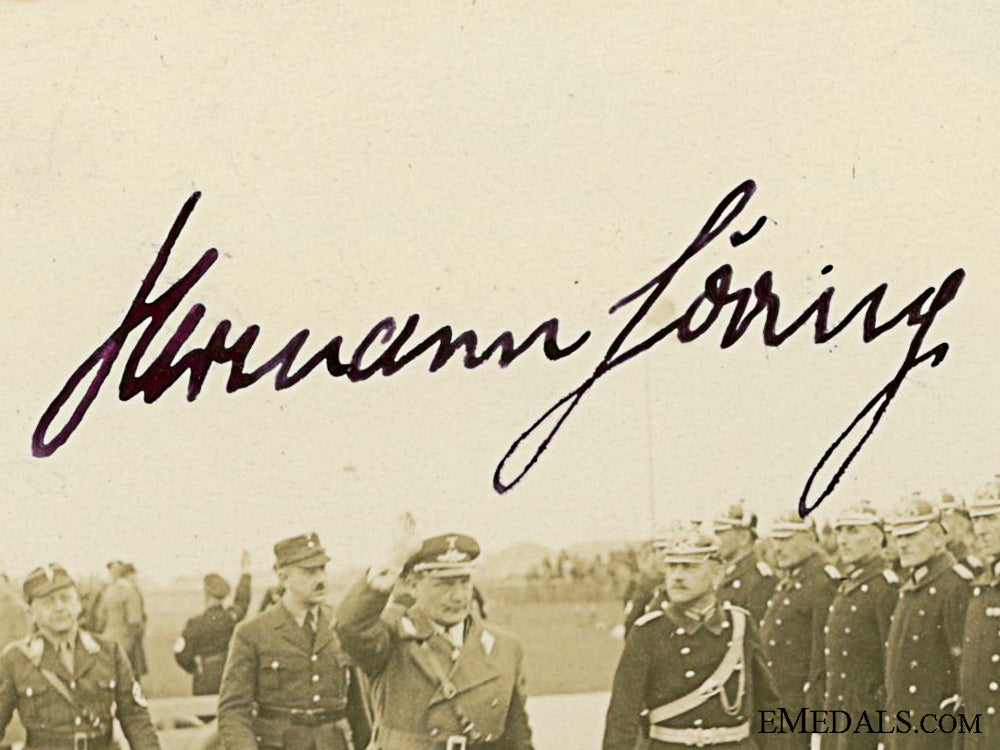 Hermann Göring
EMEDALS.COM